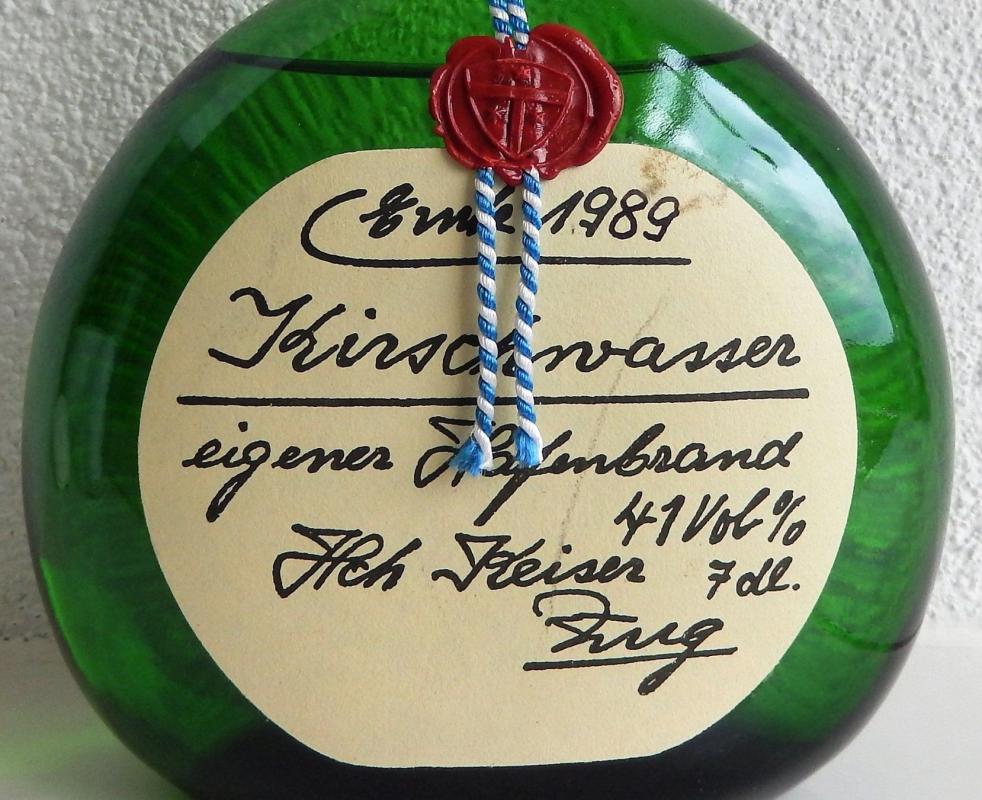 Ernte 1989
Kirschwasser
eigener Hafenbrand
41 Vol %
Hch Keiser 7 dl.
Zug